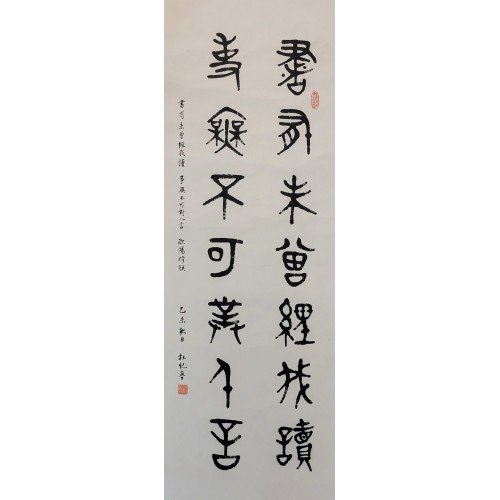 書有未曾經我讀
事無不可對人言
書有未曾經我讀 事無不可對人言 歐陽修聯
乙未秋日 杜紀魯